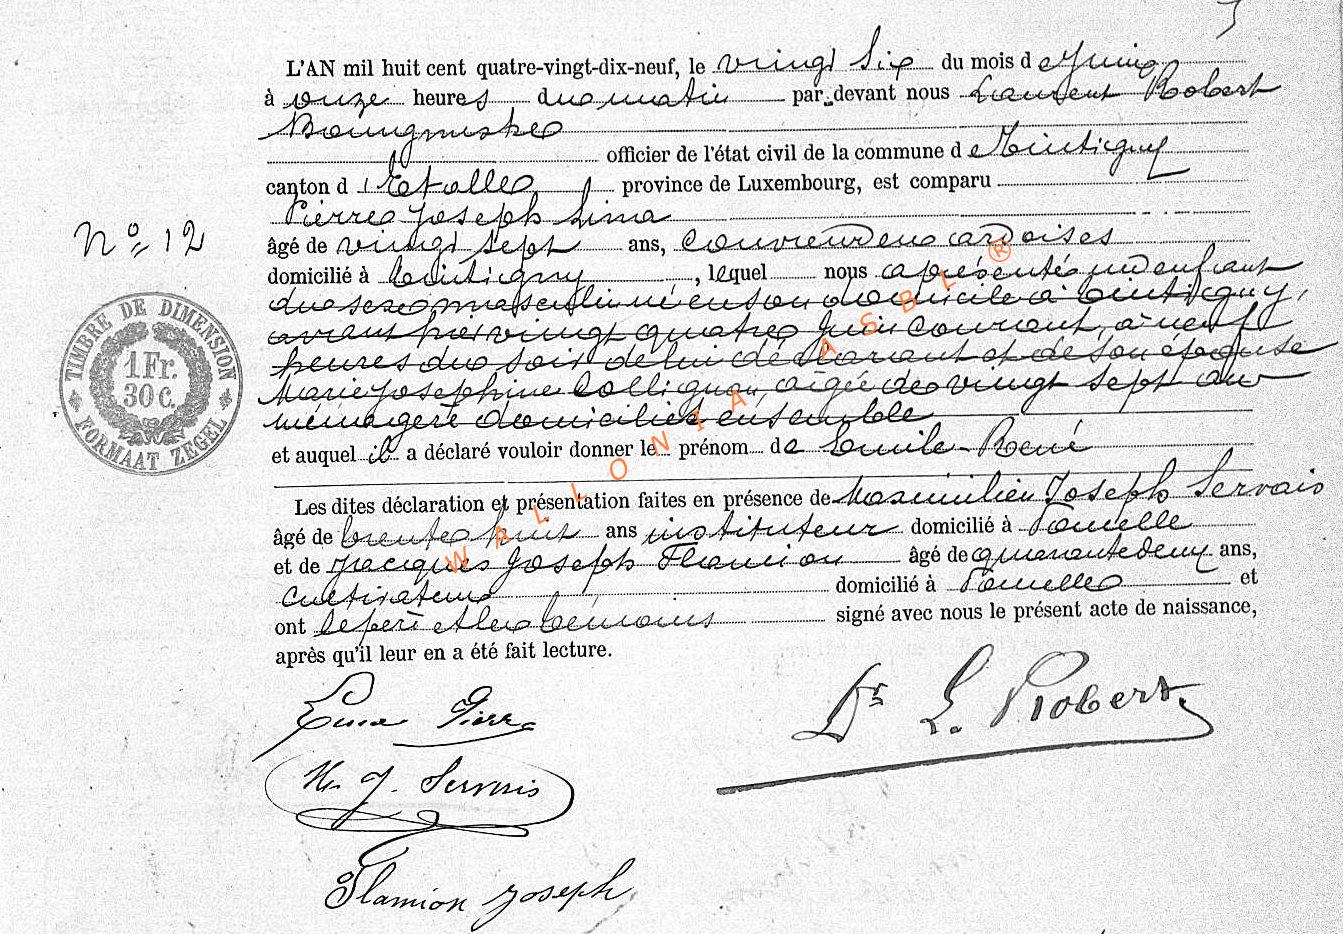 L'AN mil huit cent quatre-vingt-dix-neuf, le vingt Six du mois de Juin
à onze heures du matin par-devant nous Laurent Robert
Bourgmestre
officier de l'état civil de la commune de Tintigny
canton d'Etalle province de Luxembourg, est comparu
Pierre Joseph Lima
N° 12
âgé de vingt sept ans, couvreur en ardoises
domicilié à Tintigny, lequel nous a présenté un enfant
du sexe masculin né en son domicile à Tintigny,
avant hier vingt quatre Juin courant, à neuf
heures du soir de lui déclarant et de son épouse
Marie Josephine Collignon, agée de vingt sept ans
ménagère domiciliés ensemble
et auquel il a déclaré vouloir donner le prénom de Emile-René
Les dites déclaration et présentation faites en présence de Maximilien Joseph Servais
âgé de trente huit ans instituteur domicilié à
et de Jacques Joseph Flamion âgé de quarante deux ans,
cultivateur domicilié à et
ont le père et les témoins signé avec nous le présent acte de naissance,
après qu'il leur en a été fait lecture.
Lima Pierre
Dr L. Robert
M. J. Servais
Flamion Joseph
TIMBRE DE DIMENSION
1 Fr.
30 C.
FORMAAT ZEGEL
WALLONIA ASBL ®